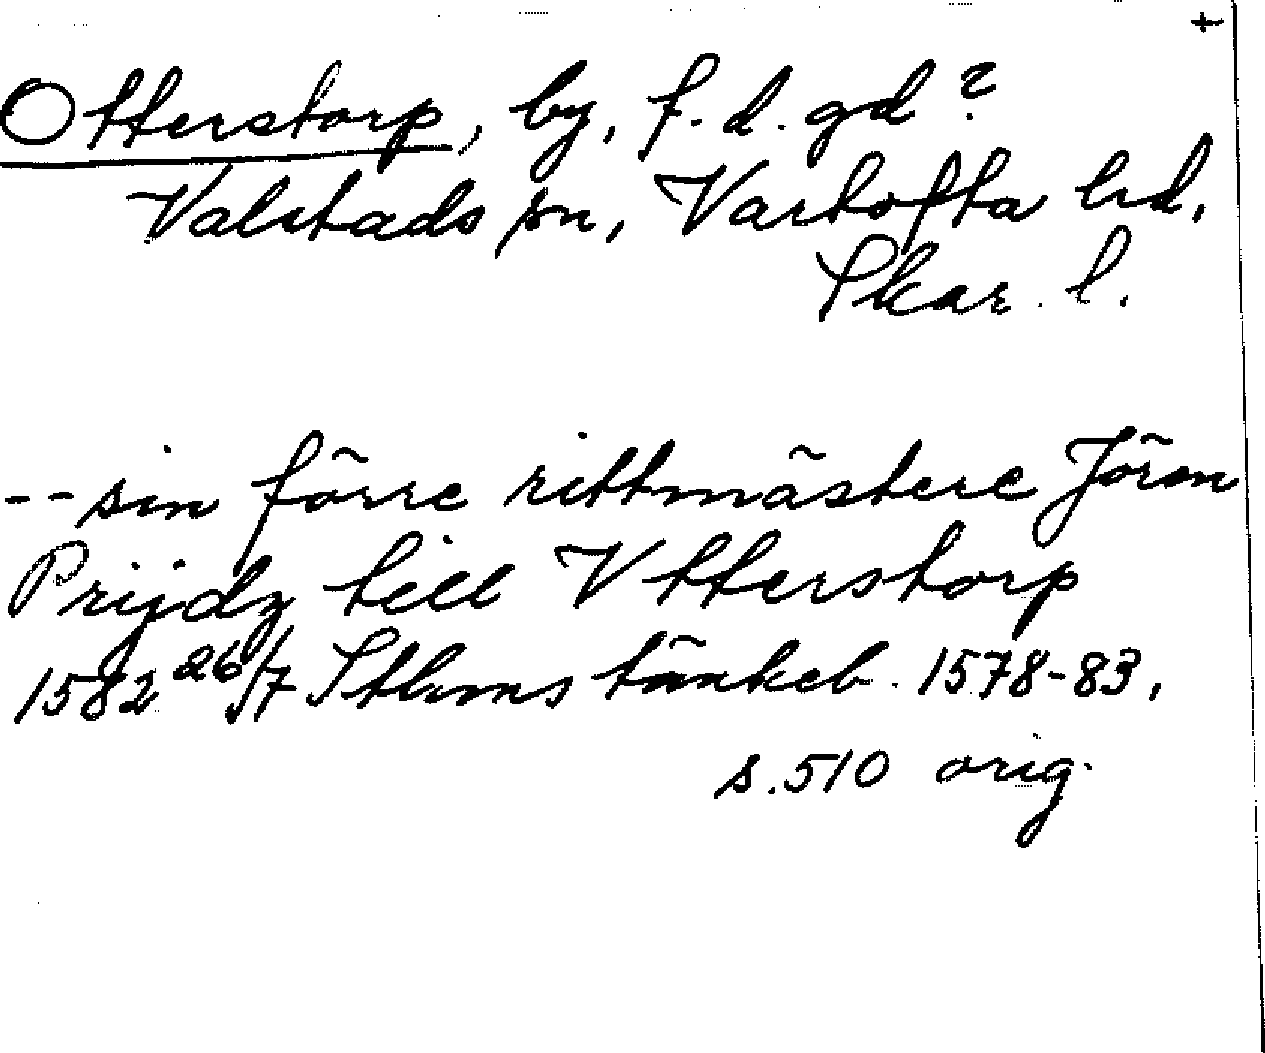 +
Otterstorp, by, f.d. gd?
Valstads sn, Vartofta hd,
Skar. l.
-- sin förre rittmästere Jören
Prijdz till Vtterstorp
1582 26/7 Sthms tänkeb. 1578-83,
s. 510 orig.